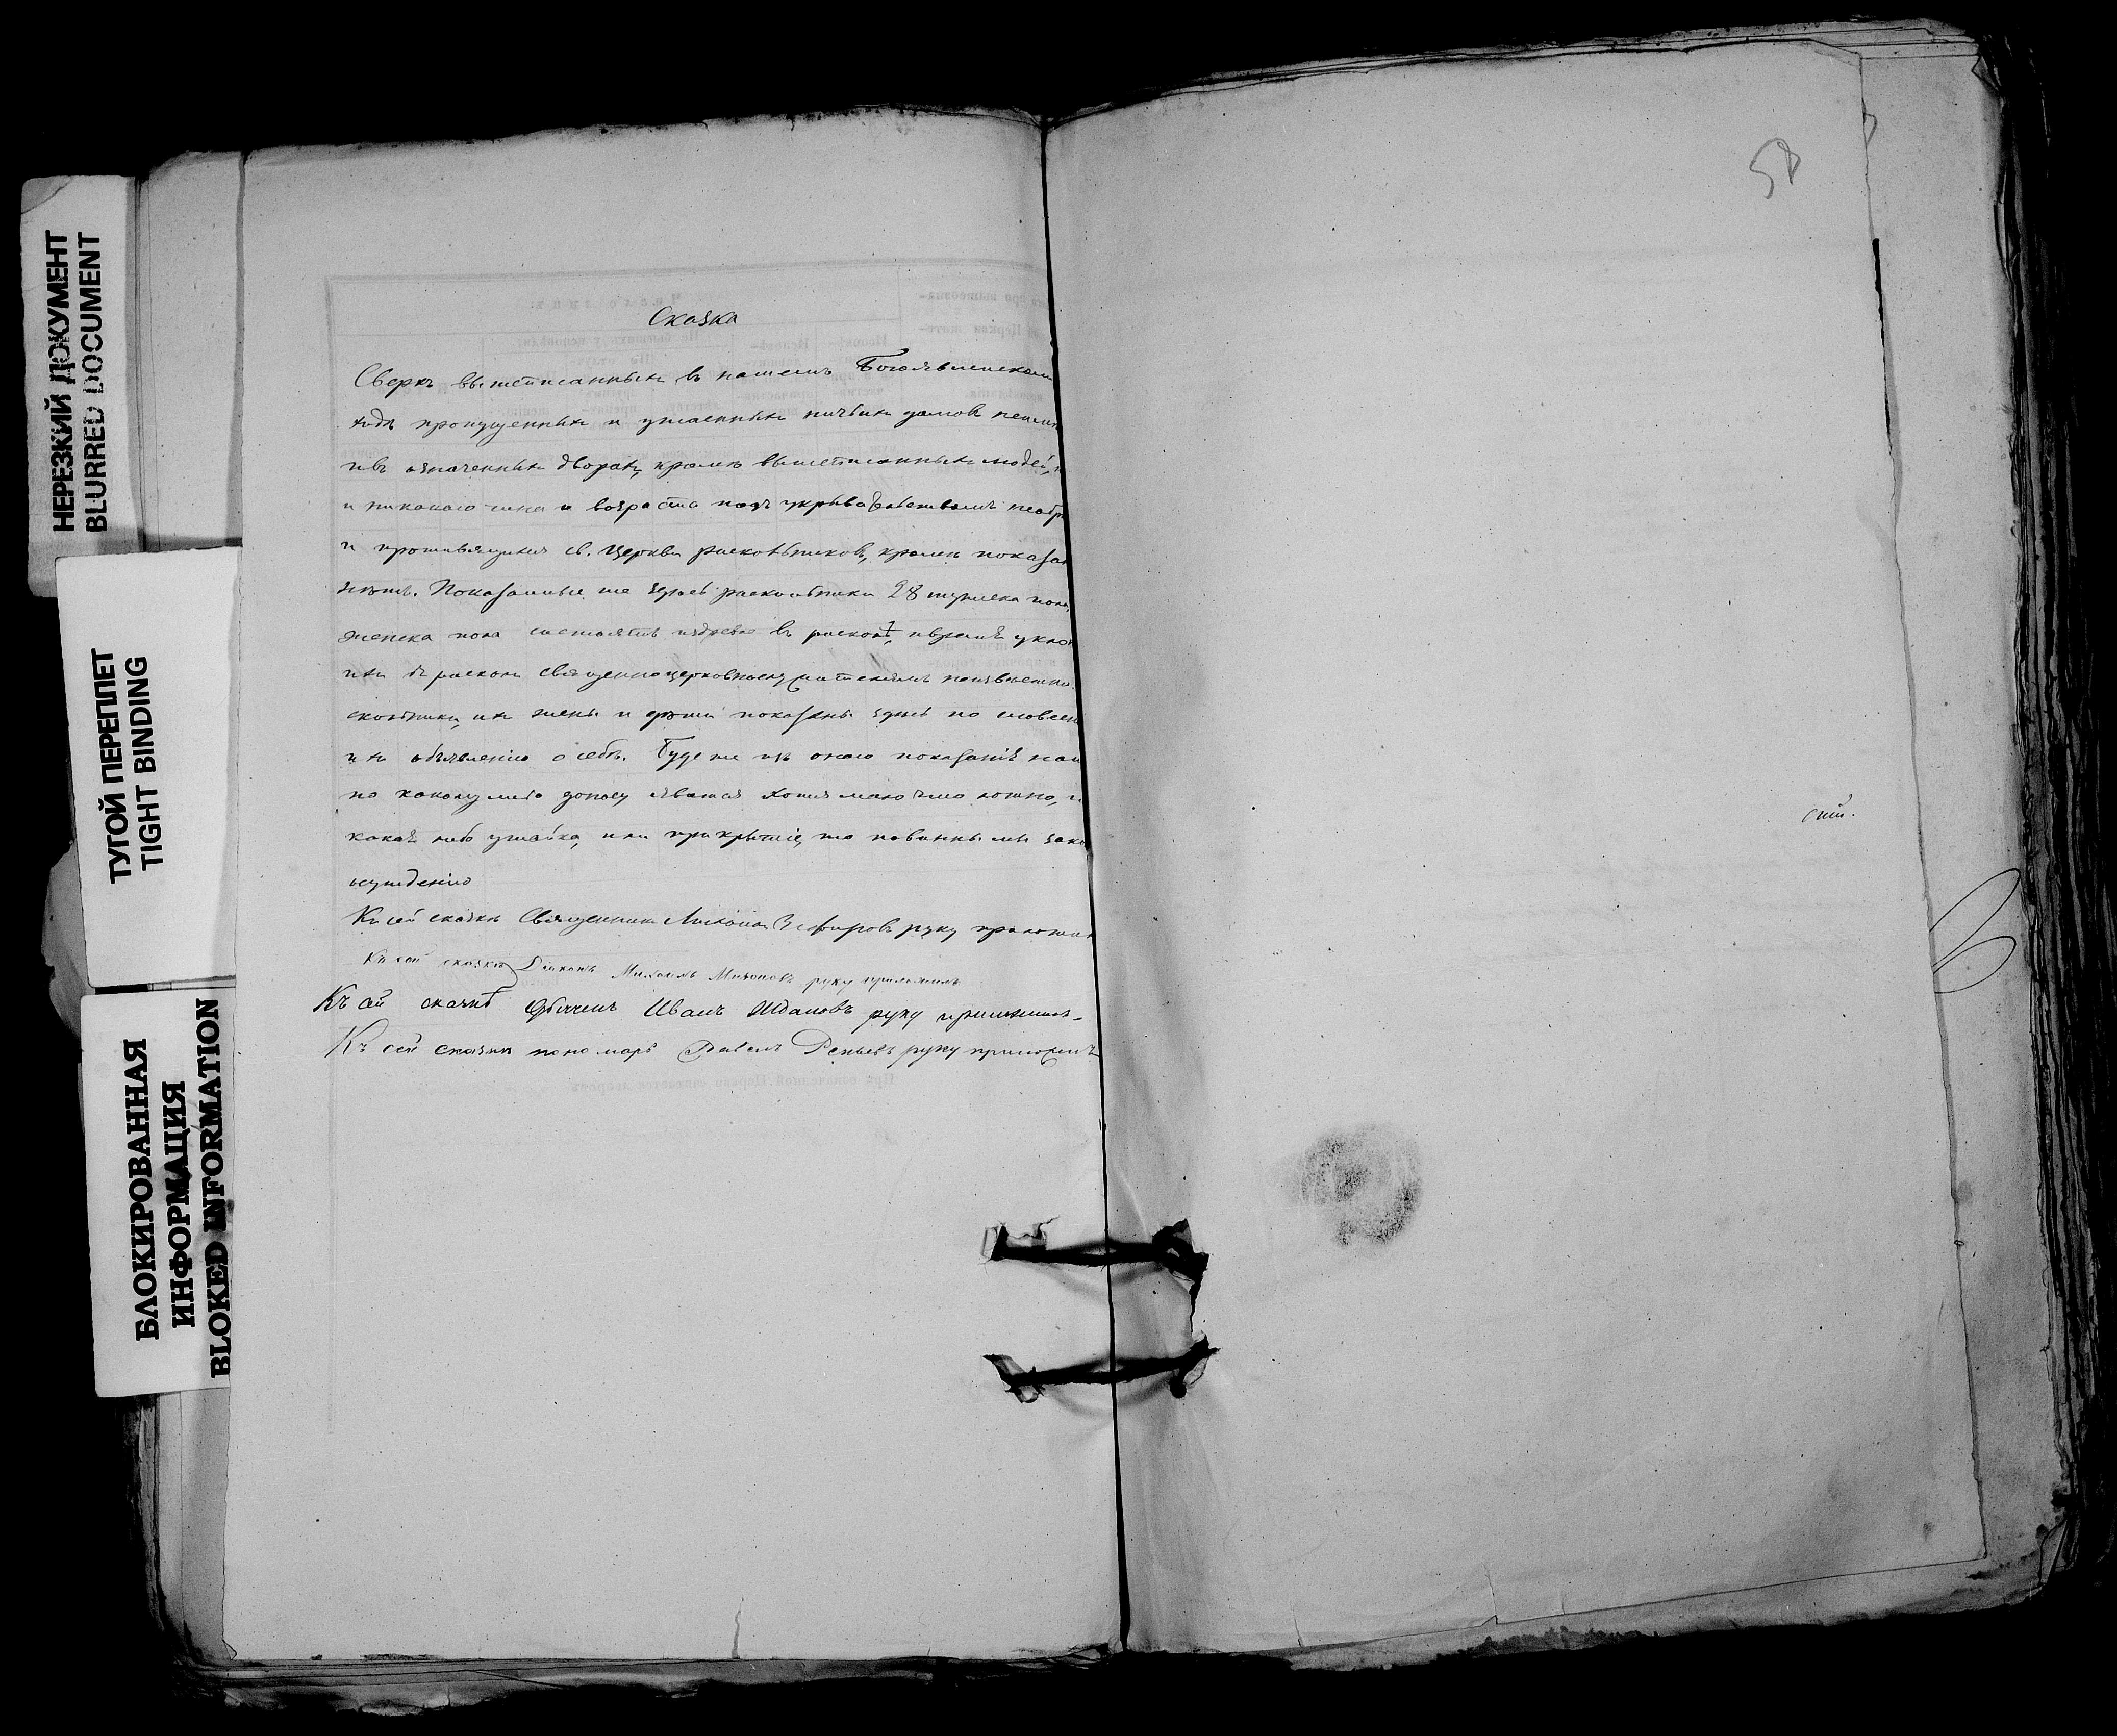 НЕРЕЗКИЙ ДОКУМЕНТ
BLURRED DOCUMENT
ТУГОЙ ПЕРЕПЛЕТ
TIGHT BINDING
БЛОКИРОВАННАЯ
ИНФОРМАЦИЯ
BLOKED INFORMATION
58
Сказка
Сверхъ вышеписанныхъ въ нашемъ Богоявленском
ходѣ пропущенныхъ и утаенныхъ ничьихъ домовъ
и въ означенныхъ дворахъ, кромѣ вышеписанныхъ людей,
и никакого чина и возраста подъ укрывательствомъ
и противящихся св. Церкви раскольниковъ, кромѣ показан
нѣтъ. Показанные же здѣсь раскольники 28 мужеска пола
женска пола состоятъ издревле въ расколѣ, и время укло
ихъ въ расколъ священноцерковнослужителямъ неизвѣстно.
скольники, ихъ жены и дѣти показаны здѣсь по
ихъ объявленію о себѣ. Буде же изъ оного показанія
по какому либо доносу явится хотя мало что ложно, и
какая либо утайка, или прикрытіе, то повинны мы зако
осужденію
Къ сей сказкѣ Священникъ Михаилъ Зефировъ руку приложил
Къ сей сказкѣ Діаконъ Михаилъ руку приложилъ
Къ сей сказкѣ Дьячекъ Иванъ Ждановъ руку приложилъ
Къ сей сказкѣ пономарь Павелъ руку приложилъ